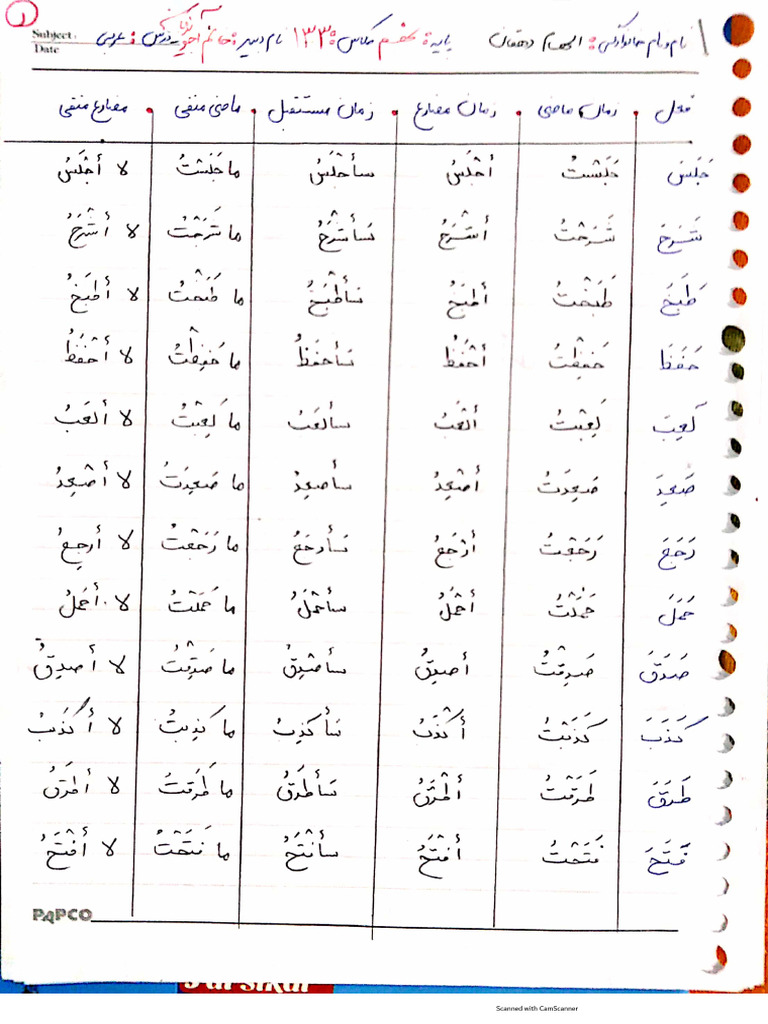 ①
Subject:
Date
نام و نام خانوادگی: الهام دهقان پایه: هفتم کلاس: ۱۳۳ نام دبیر: خانم درس: عربی
فعل زمان ماضی زمان مضارع زمان مستقبل ماضی منفی مضارع منفی
جَلَسَ جَلَسْتُ أجْلَسُ سأجْلَسُ ما جَلَسْتُ لا أجْلَسُ
شَرَحَ شَرَحْتُ أشْرَحُ سَأشْرَحُ ما شَرَحْتُ لا أشْرَحُ
طَبَخَ طَبَخْتُ أطبَخُ سَأطْبَخُ ما طَبَخْتُ لا أطْبَخُ
حَفَظَ حَفِظْتُ أحْفَظُ سَأحفَظُ ما حَفِظْتُ لا أحْفَظُ
لَعِبَ لَعِبْتُ ألْعَبُ سألعَبُ ما لَعِبْتُ لا ألعَبُ
صَعِدَ صَعِدَتُ أصْعِدُ سأصعِدُ ما صَعِدَتُ لا أصْعِدُ
رَجَعَ رَجَعْتُ أرْجَعُ سَأرجَعُ ما رَجَعْتُ لا أرجِعُ
حَمَلَ حَمَلْتُ أحْمَلُ سأحْمَلُ ما حَمَلْتُ لا أحمَلُ
صَدَقَ صَدِقْتُ أصدِقُ سأصْدِقُ ما صَدِقْتُ لا أصدِقُ
كَذَبَ كَذَبْتُ أكْذَبُ سَأكذِبُ ما كذِبتُ لا أكْذَبُ
طَرَقَ طَرَقْتُ أطْرَقُ سَأطرَقُ ما طَرَقتُ لا أطْرَقُ
فَتَحَ فَتَحْتُ أفْتَحُ سأفْتَحُ ما فَتَحْتُ لا أفْتَحُ
PAPCO
Scanned with CamScanner